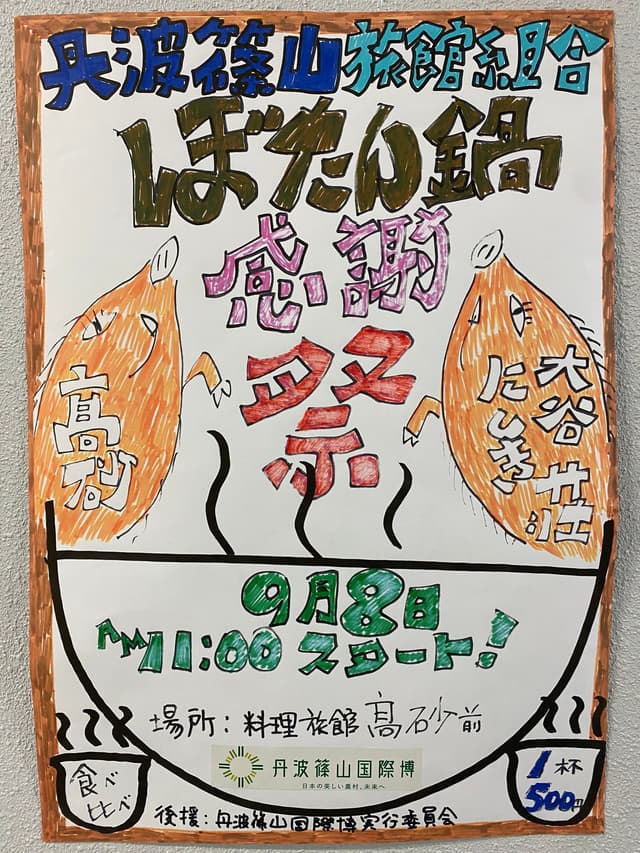 丹波篠山旅館組合
ぼたん鍋
感謝
祭
高砂
大谷荘
にしき
9月8日
AM11:00 スタート!
場所:料理旅館高砂前
丹波篠山国際博
日本の美しい農村、未来へ
食べ
比べ
1杯
500円
後援:丹波篠山国際博実行委員会